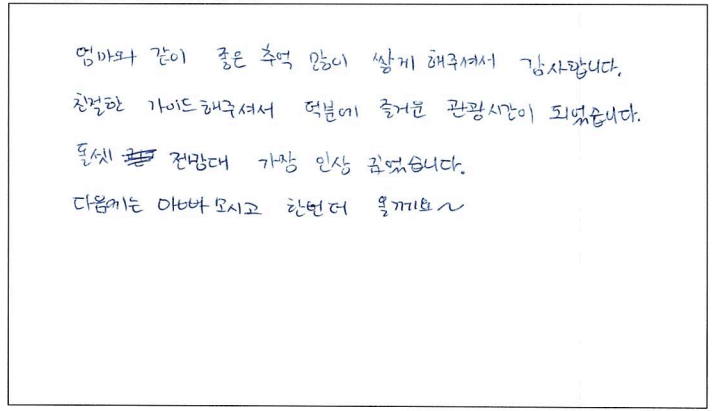 엄마와 같이 좋은 추억 많이 쌓게 해주셔서 감사합니다.
친절한 가이드해주셔서 덕분에 즐거운 관광시간이 되었습니다.
돌셋 전망대 가장 인상 깊었습니다.
다음에는 아빠 모시고 한번더 올께요~